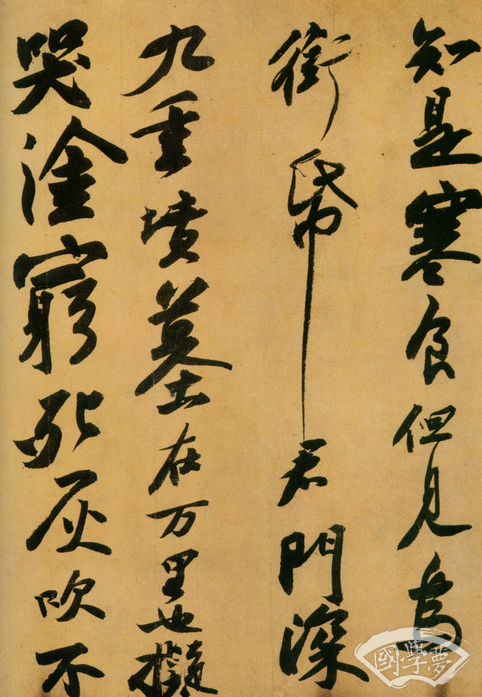 知是寒食但見烏
銜帋君門深
九重墳墓在万里也擬
哭塗窮死灰吹不
國學夢